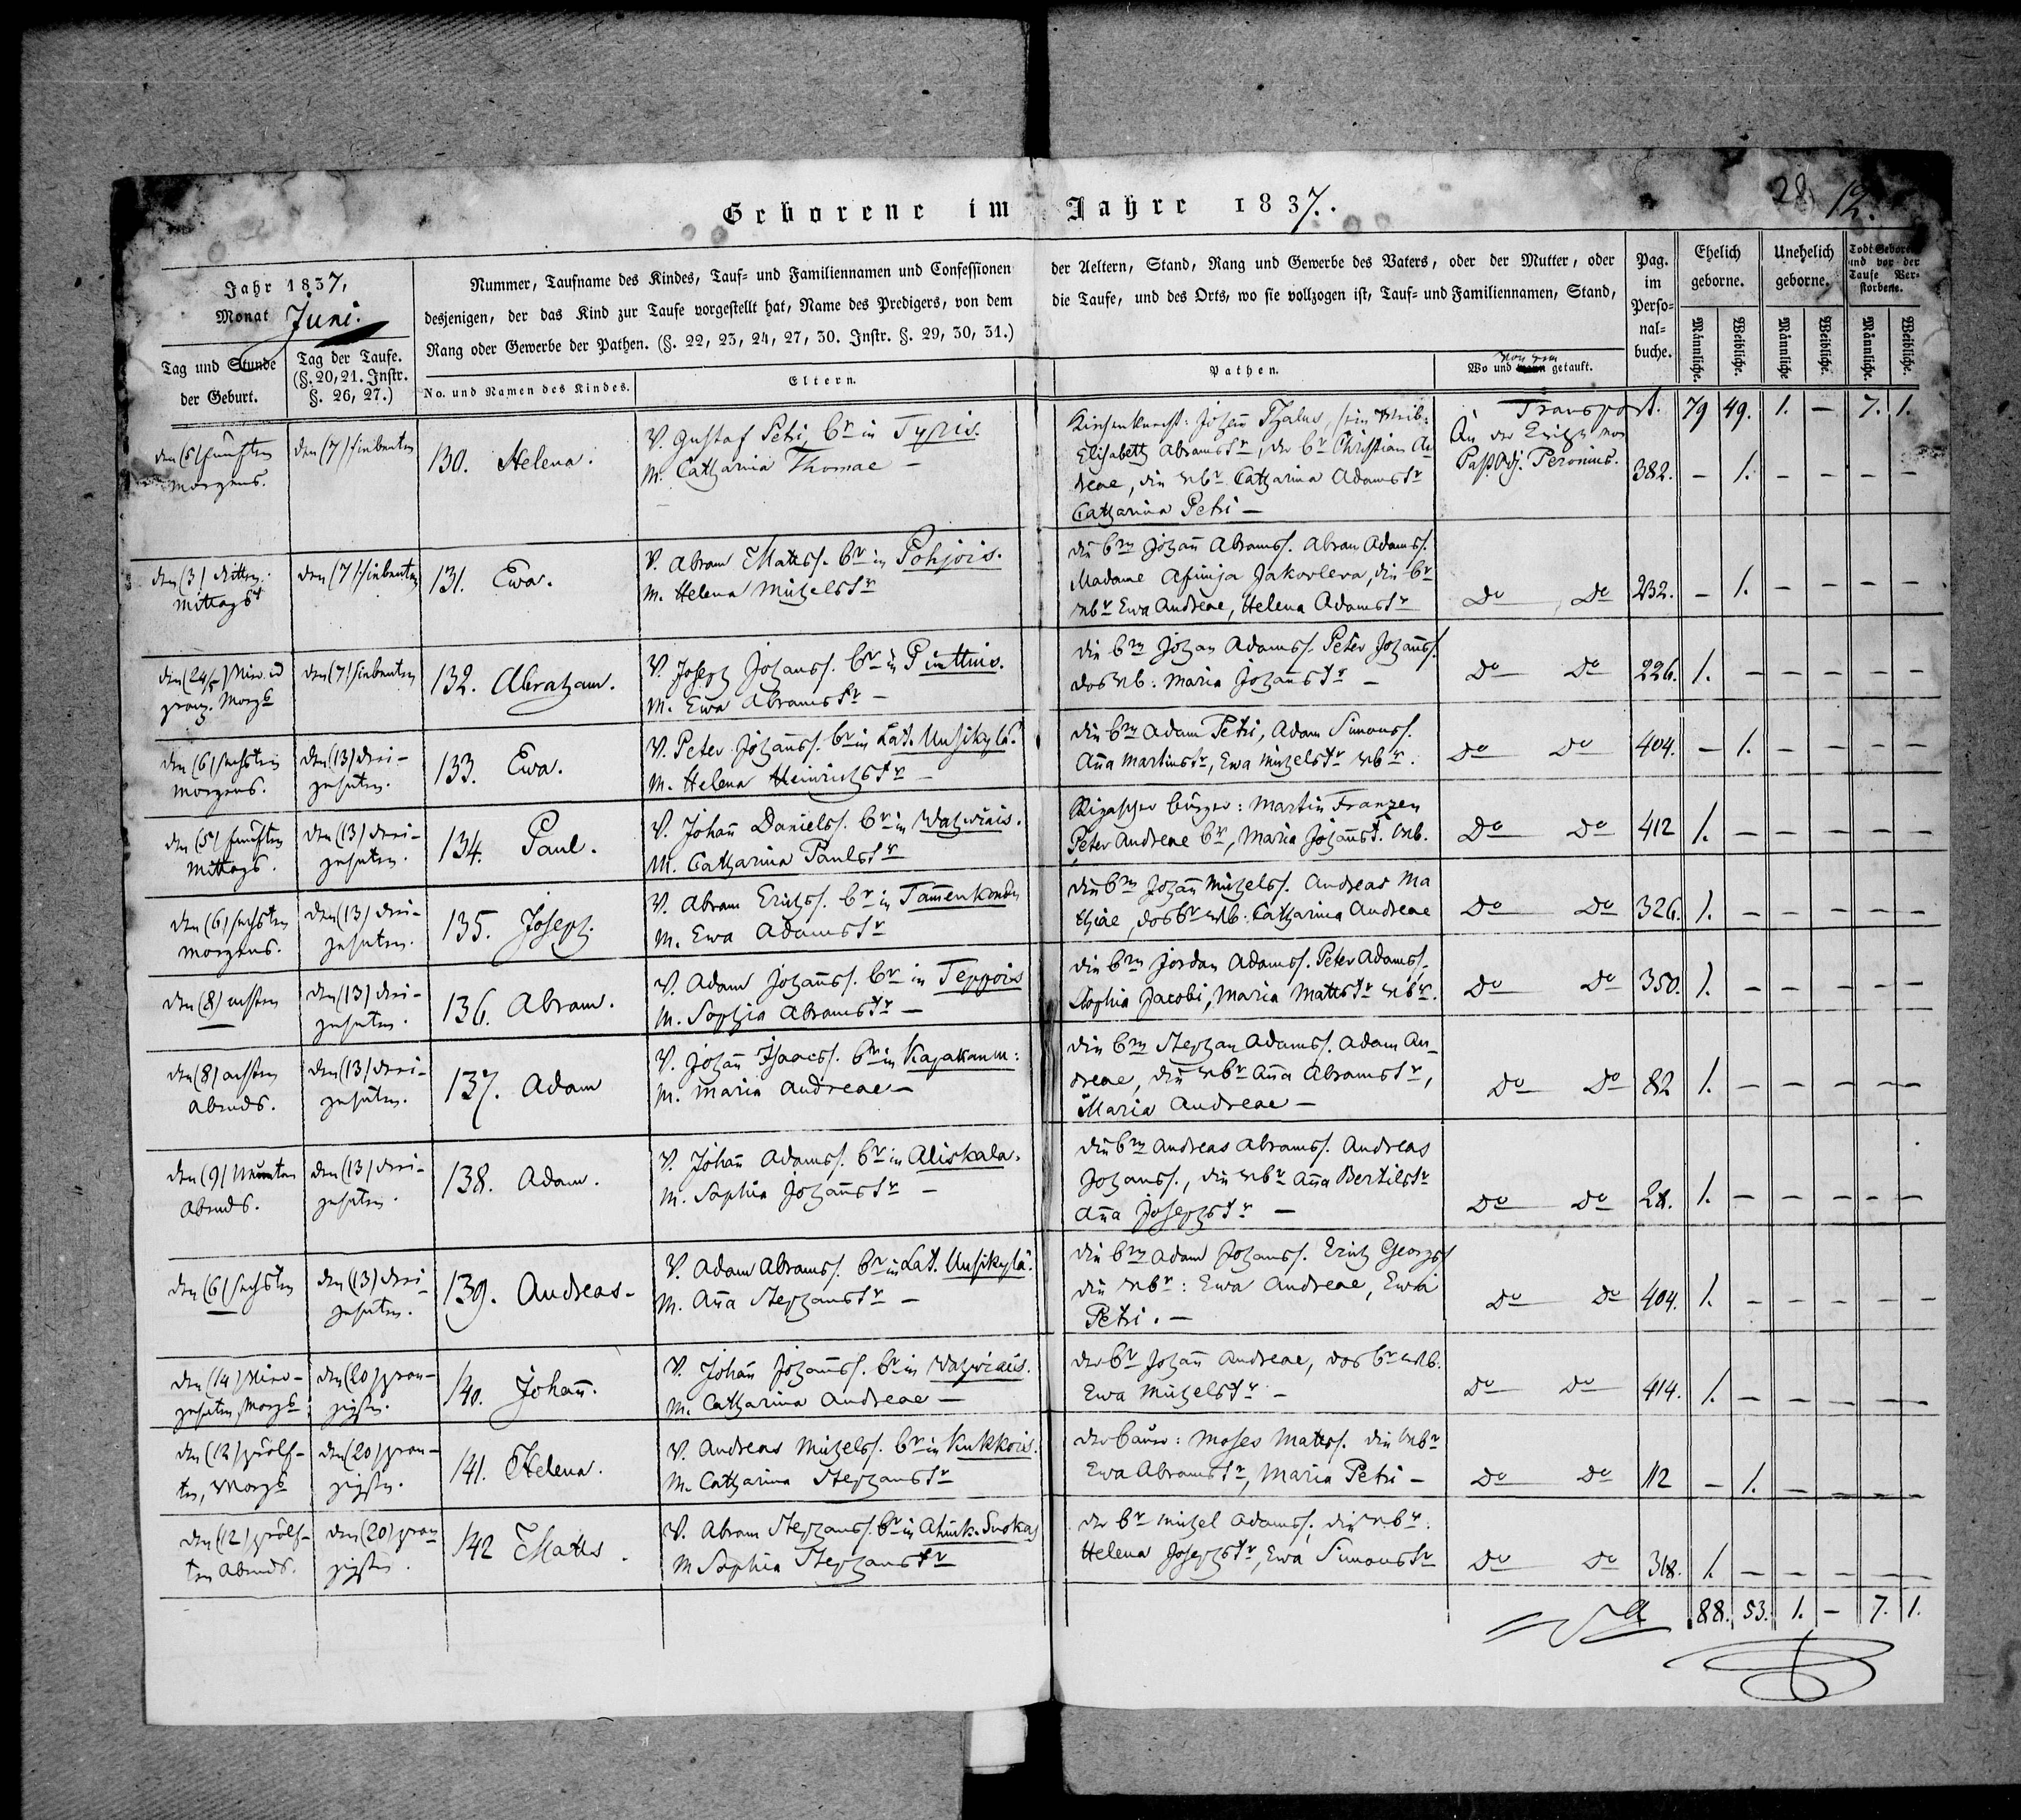 Geborene im Jahre 1837.
28. 12.
Jahr 1837,
Monat Juni.
Tag und Stunde
der Geburt.
Tag der Taufe.
(§. 20, 21. Instr.
§. 26, 27.)
Nummer, Taufname des Kindes, Tauf- und Familiennamen und Confessionen
desjenigen, der das Kind zur Taufe vorgestellt hat, Name des Predigers, von dem
Rang oder Gewerbe der Pathen. (§. 22, 23, 24, 27, 30. Instr. §. 29, 30, 31.)
No. und Namen des Kindes.
Eltern.
der Aeltern, Stand, Rang und Gewerbe des Vaters, oder der Mutter, oder
die Taufe, und des Orts, wo sie vollzogen ist, Tauf- und Familiennamen, Stand,
Pathen.
von wem
Wo und wann getauft.
Pag.
im
Perso-
nal-
buche.
Ehelich
geborne.
Unehelich
geborne.
Todt Geborne
und vor der
Taufe Ver-
storbene.
Männliche.
Weibliche.
Männliche
Weibliche.
Männliche.
Weibliche.
Transport. 79 49. 1. – 7. 1.
den (5) fünften
morgens.
den (7) siebenten
130. Helena.
V. Gustaf Petri, br in Typis.
M. Catharina Thomae –
Kirchenknecht: Johan̄ Thalus, sein Weib:
Elisabeth Abramstr, der br Christian An
dreae, die wbr Catharina Adamstr
Catharina Petri –
In der Kirche von
Past. Adj. Peronius.
382. – 1. – – – –
den (3) dritten.
Mittags
den (7) siebenten
131. Ewa.
V. Abram Mattss. br in Pohjois.
M. Helena Michelstr
die brn Johan̄ Abramss. Abram Adamss.
Madame Afimja Jakovlewa, die br
wbr Ewa Andreae, Helena Adamstr
Do Do
232. – 1. – – – –
den (24/5) vier und
zwanz. Morgs
den (7) siebenten
132. Abraham.
V. Joseph Johanss. br in Pinttins.
M. Ewa Abramstr –
die brn Johan Adamss. Peter Johan̄ss.
das wb: Maria Johanstr –
Do Do
226. 1. – – – – –
den (6) sechsten
morgens.
den (13) drei-
zehnten.
133. Ewa.
V. Peter Johan̄ss. br in Lat. Uusikylä.
M. Helena Heinrichstr –
die brn Adam Petri, Adam Simonss.
An̄a Martinstr, Ewa Michelstr wbr.
Do Do
404. – 1. – – – –
den (5) fünften
Mittags.
den (13) drei-
zehnten.
134. Paul.
V. Johan̄ Danielss. br in Wahwiais.
M. Catharina Paulstr
Rigascher bürger: Martin Franzen
Peter Andreae br, Maria Johan̄st. wb.
Do Do
412 1. – – – – –
den (6) sechsten
morgens.
den (13) drei-
zehnten.
135. Joseph.
V. Abram Erichss. br in Tam̄enkondu
M. Ewa Adamstr
die brn Johan̄ Michelss. Andreas Ma
thiae, das br wb. Catharina Andreae
Do Do
326. 1. – – – – –
den (8) achten
den (13) drei-
zehnten.
136. Abram.
V. Adam Johan̄ss. br in Teppois
M. Sophia Abramstr –
die brn Jordan Adamss. Peter Adamss.
Sophia Jacobi, Maria Mattstr wbr.
Do Do
350. 1. – – – – –
den (8) achten
abends.
den (13) drei-
zehnten.
137. Adam
V. Johan̄ Isaacss. br in Kapakanm:
M. Maria Andreae –
die brn Stephan Adamss. Adam An-
dreae, die wbr An̄a Abramstr,
Maria Andreae –
Do Do
82 1. – – – – –
den (9) Neunten
Abends.
den (13) drei-
zehnten.
138. Adam.
V. Johan̄ Adamss. br in Aliskala.
M. Sophia Johan̄str –
die brn Andreas Abramss. Andreas
Johanss., die wbr An̄a Bertilstr
An̄a Josephstr –
Do Do
28. 1. – – – – –
den (6) sechsten
den (13) drei-
zehnten.
139. Andreas.
V. Adam Abramss. br in Lat. Uusikylä.
M. An̄a Stephanstr –
die brn Adam Johanss. Erich Georgss
die wbr: Ewa Andreae, Ewa
Petri. –
Do Do
404. 1. – – – – –
den (14) Vier-
zehnten, Morgs
den (20) zwan-
zigsten.
140. Johan̄.
V. Johan̄ Johan̄ss. br in Wahwiais.
M. Catharina Andreae –
der br Johan̄ Andreae, das br wb.
Ewa Michelstr –
Do Do
414. 1. – – – – –
den (12) zwölf-
ten, Morgs
den (20) zwan-
zigsten.
141. Helena.
V. Andreas Michelss. br in Kukkois.
M. Catharina Stephanstr
der bauer: Moses Mattss. die wbr
Ewa Abramstr, Maria Petri –
Do Do
112 – 1. – – – –
den (12) zwölf-
ten Abends.
den (20) zwan
zigsten.
142 Matts.
V. Abram Stephanss. br in Ahink. Suokas
M Sophia Stephanstr
der br Michel Adamss, die wbr.
Helena Josephstr, Ewa Simonstr
Do Do
318. 1. – – – – –
88. 53. 1. – 7. 1.